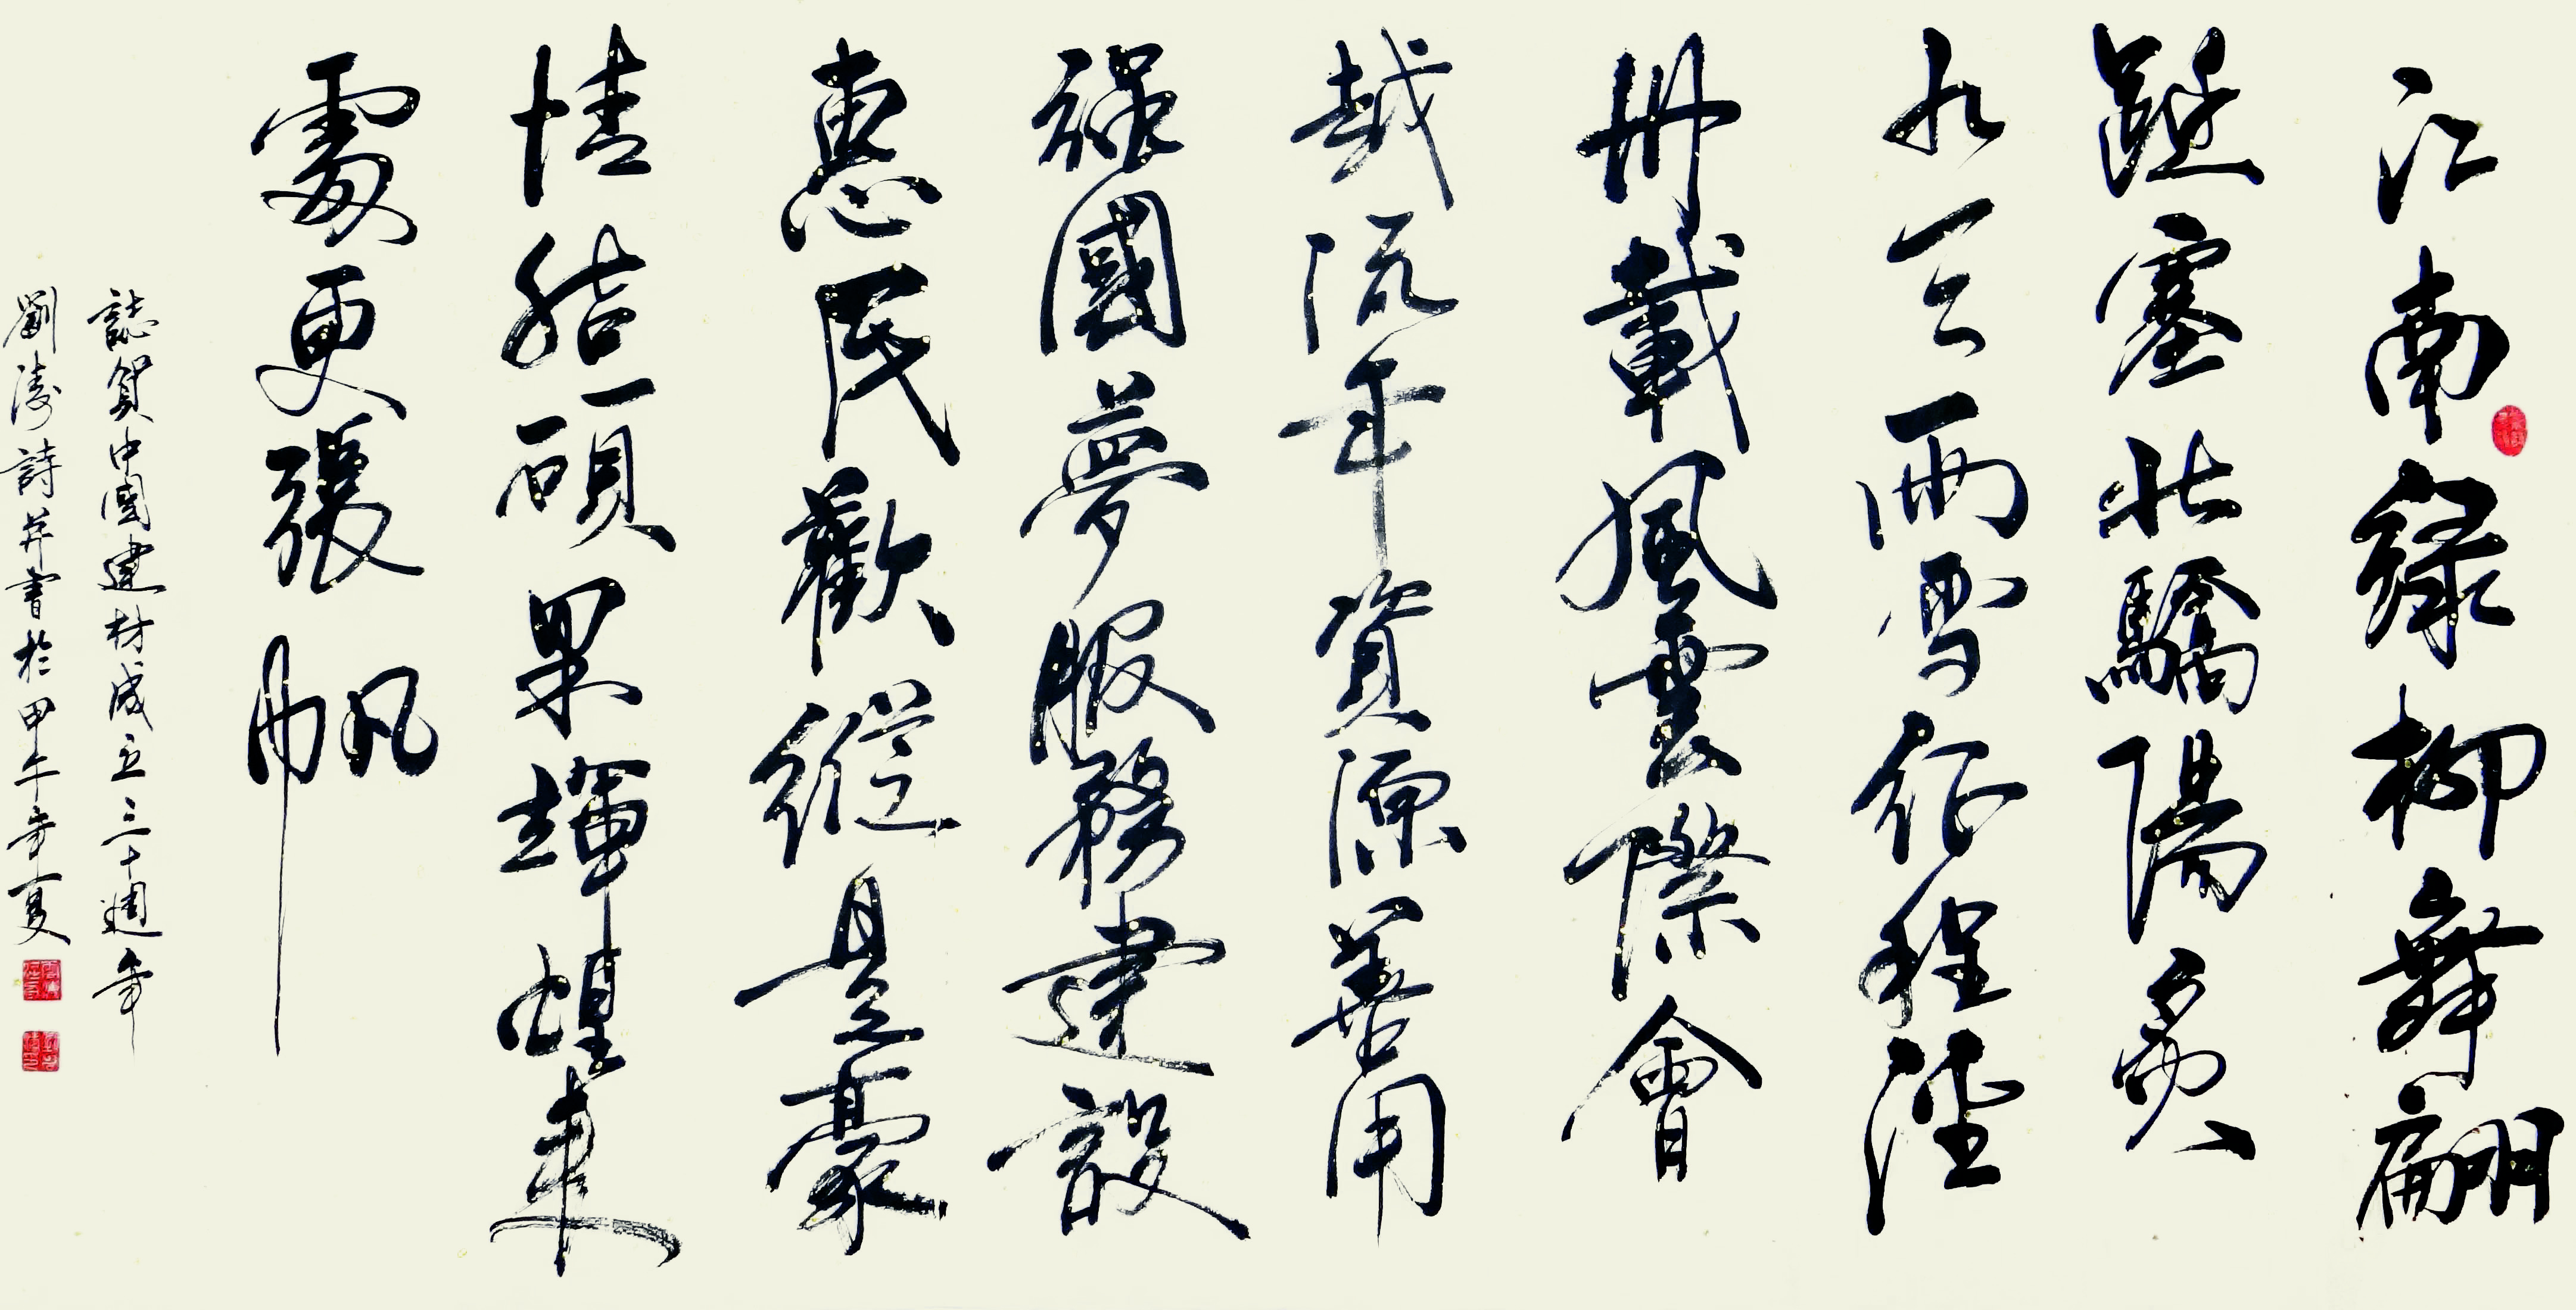 江南綠柳舞翩
躚塞北驕陽炙
九天雨雪征程
卅載風雲際會
越流年資源善用
強國夢服務建設
惠民歡縱是豪
情結碩果輝煌來
處更張帆
誌賀中國建材成立三十週年
劉濤詩并書於甲午年夏